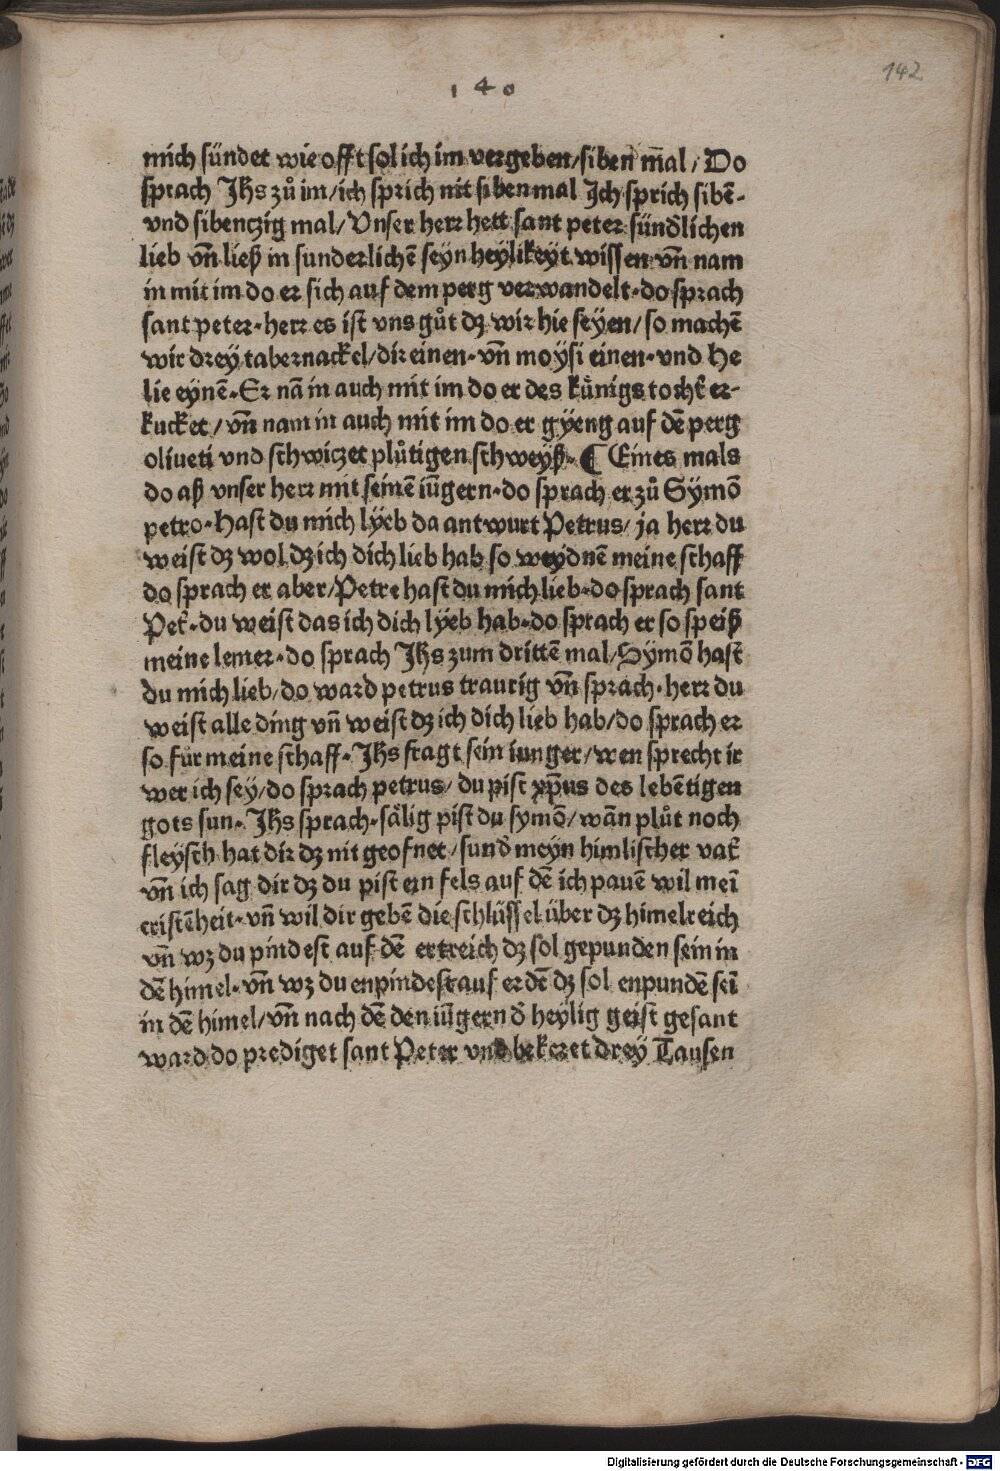 142
1 4 0
mich sündet wie offt sol ich im vergeben/siben m̄al/Do
sprach Jhs zů im/ich sprich nit siben mal Jch sprich sibē-
vnd sibenczig mal/Vnser herr hett sant peter sündlichen
lieb vn̄ ließ in sunderlichē seyn heylikeyt wissen vn̄ nam
in mit im do er sich auf dem perg verwandelt·do sprach
sant peter·herr es ist vns gůt dz wir hie seyen/so machē
wir drey tabernackel/dir einen·vn̄ moysi einen·vnd He
lie eynē·Er nā in auch mit im do er des kůnigs tocht̄ er-
kucket/vn̄ nam in auch mit im do er gyeng auf dē perg
oliueti vnd schwiczet plůtigen schweyß·¶ Eines mals
do aß vnser herr mit seinē iūgern·do sprach er zů Symō
petro·Hast du mich lyeb da antwurt Petrus/ja herr du
weist dz wol dz ich dich lieb hab so weydnē meine schaff
do sprach er aber/Petre hast du mich lieb·do sprach sant
Pet̄·du weist das ich dich lyeb hab·do sprach er so speiß
meine lemer·do sprach Jhs zum drittē mal/Symō hast
du mich lieb/do ward petrus traurig vn̄ sprach·herr du
weist alle ding vn̄ weist dz ich dich lieb hab/do sprach er
so fůr meine schaff·Jhs fragt sein iunger/wen sprecht ir
wer ich sey/do sprach petrus/du pist xp̄us des lebētigen
gots sun·Jhs sprach·sälig pist du symō/wān plůt noch
fleysch hat dir dz nit geofnet/sund̄ meyn himlischer vat̄
vn̄ ich sag dir dz du pist ein fels auf dē ich pauē wil meī
cristēheit·vn̄ wil dir gebē die schlüssel über dz himelreich
vn̄ wz du pindest auf dē ertreich dz sol gepunden sein in
dē himel·vn̄ wz du enpindest auf erdē dz sol enpundē seī
in dē himel/vn̄ nach dē den iūgern d̄ heylig geist gesant
ward do prediget sant Peter vnd bekeret drey Tausen
Digitalisierung gefördert durch die Deutsche Forschungsgemeinschaft - DFG